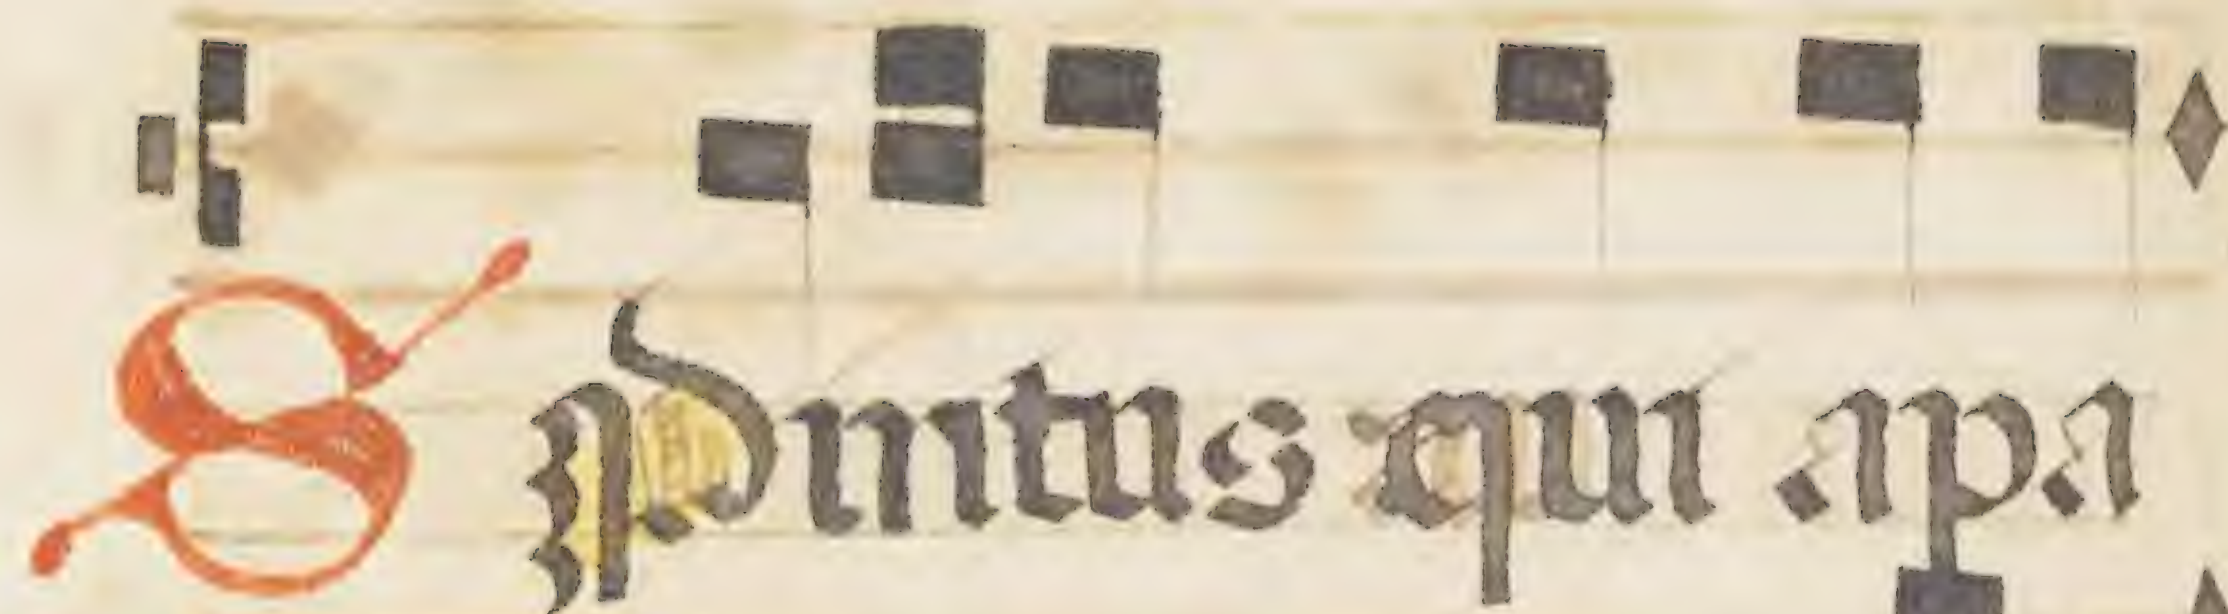 Spiritus qui apa